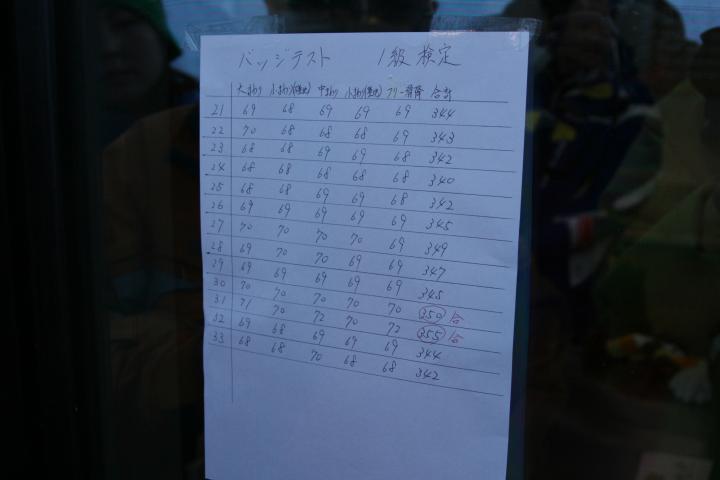 バッジテスト 1級検定
大まわり 小まわり 中まわり 小まわり フリー滑降 合計
21 69 68 69 69 69 344
22 70 68 68 68 69 343
23 68 68 69 69 68 342
24 68 68 68 68 68 340
25 68 68 69 69 68 342
26 69 69 69 69 69 345
27 70 70 70 70 69 349
28 69 70 70 69 69 347
29 69 69 69 69 69 345
30 70 70 70 70 70 350 合
31 71 70 72 70 72 355 合
32 69 68 69 69 69 344
33 68 68 70 68 68 342